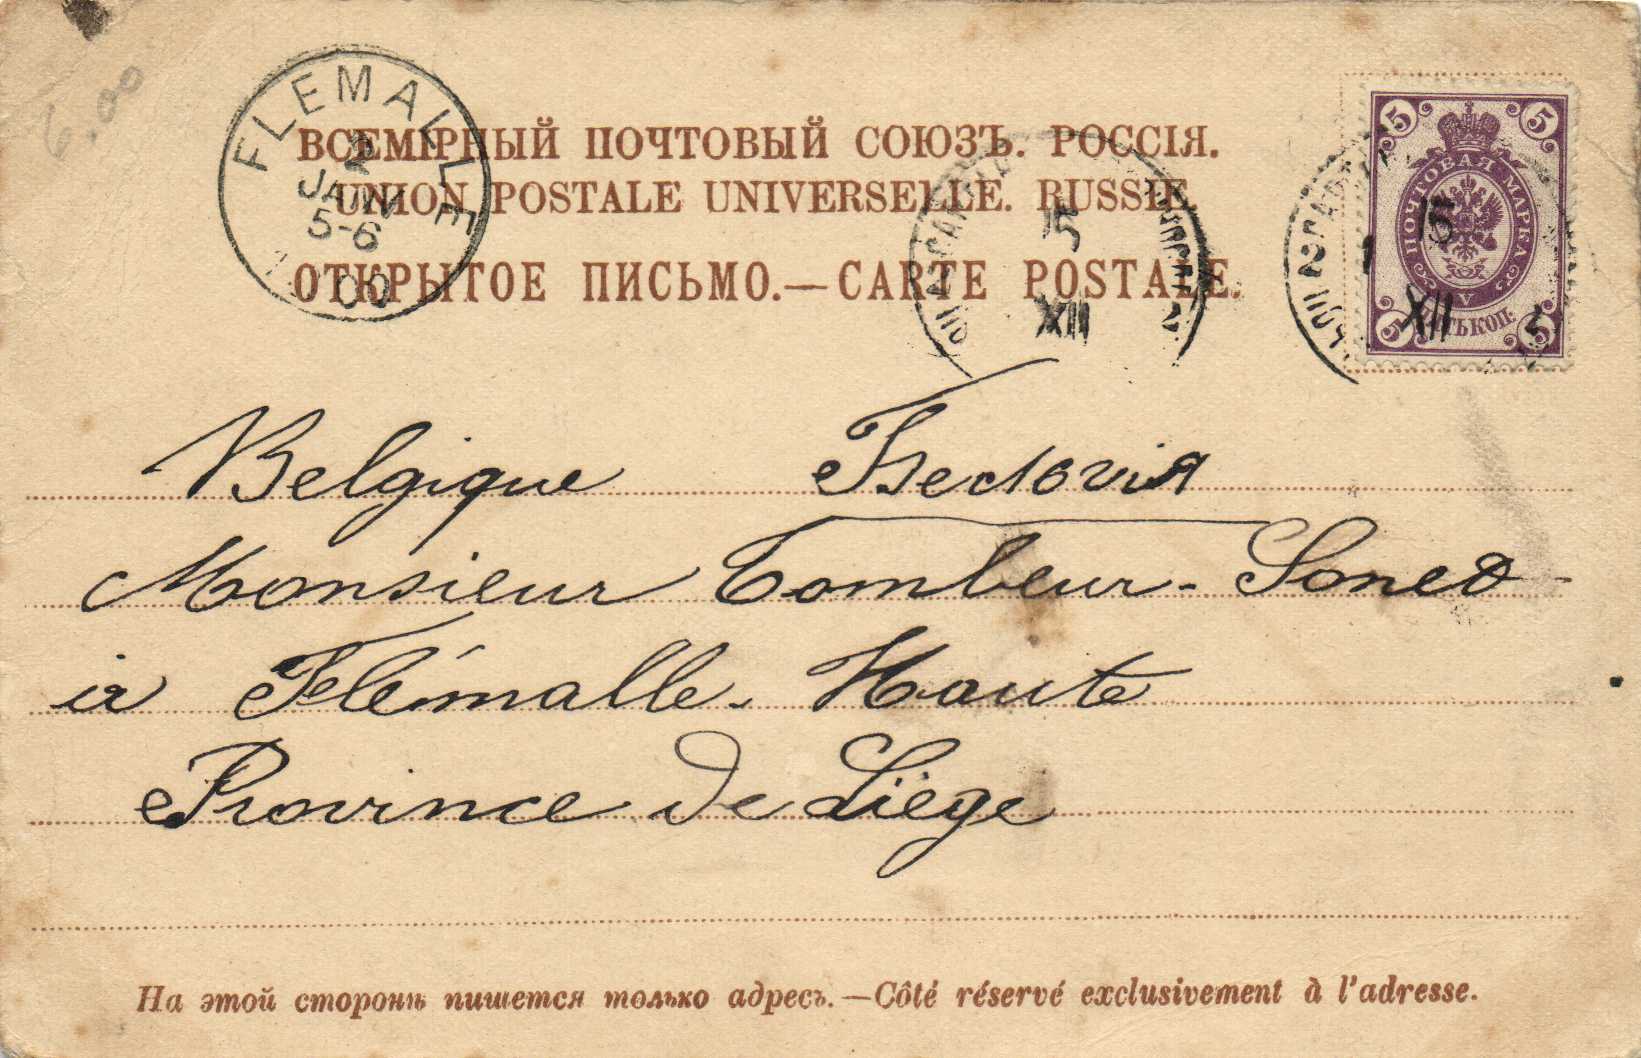 6.00
FLEMALLE
2
JANV
5-6
1900
ВСЕМІРНЫЙ ПОЧТОВЫЙ СОЮЗЪ. РОССІЯ.
UNION POSTALE UNIVERSELLE. RUSSIE.
ОТКРЫТОЕ ПИСЬМО.—CARTE POSTALE.
15
XII
2
5 5
ПОЧТОВАЯ МАРКА
15
XII
V
ПЯТЬ КОП.
5 5
Belgique Белгія
Monsieur Tombeur-
à Flémalle-Haute
Province de Liège
На этой сторонѣ пишется только адресъ.—Côté réservé exclusivement à l'adresse.